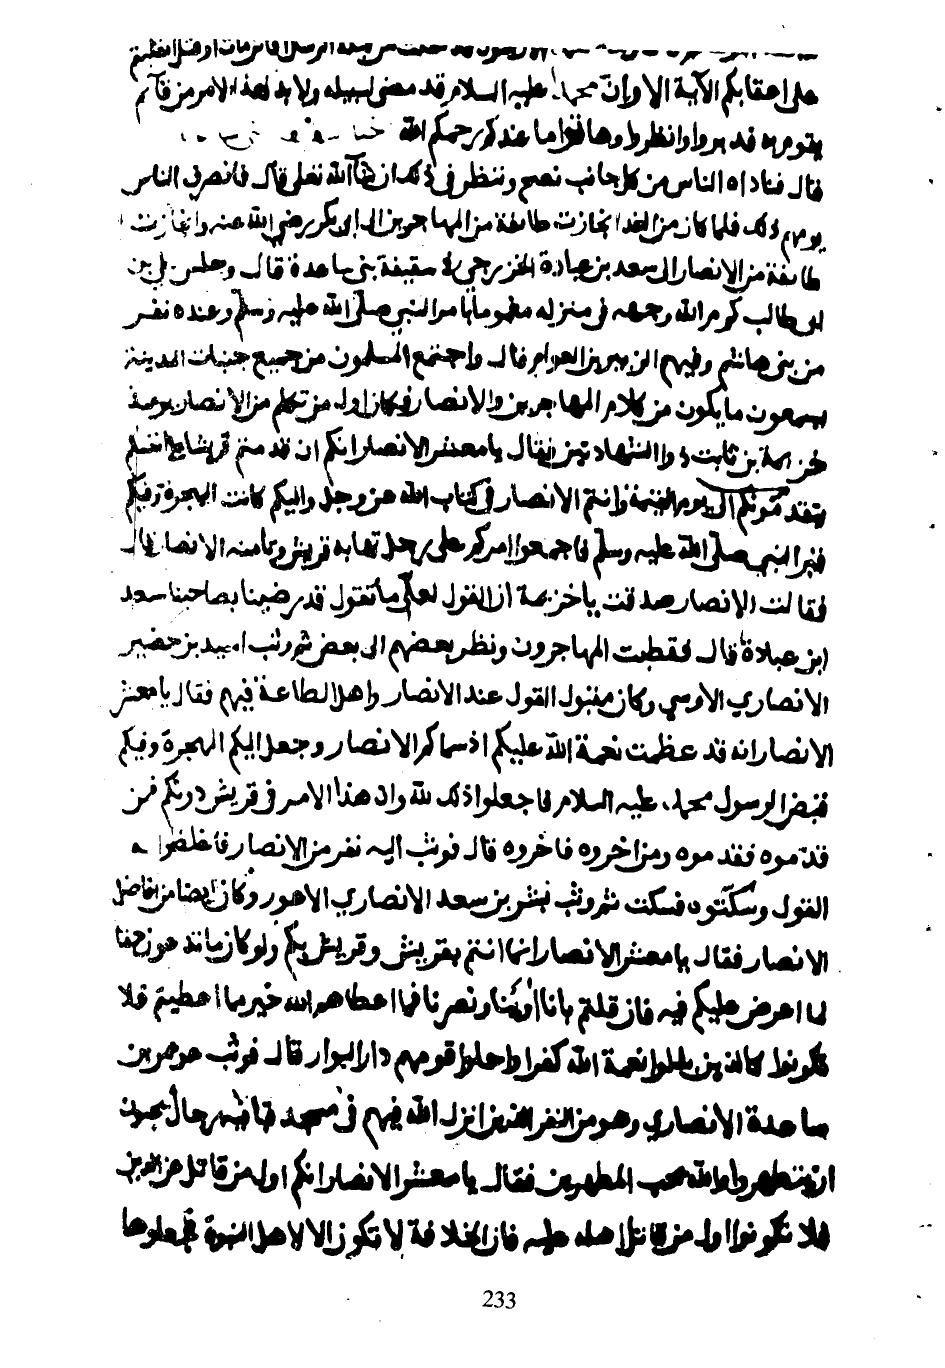 على اعقابكم الآية الا وان محمدا عليه السلام قد مضى لسبيله ولا بد لهذا الامر من قائم
يقوم به فدبروا وانظروا وهاتوا ما عندكم رحمكم الله
قال فناداه الناس من كل جانب نصبح وننظر في ذلك ان شآ الله تعلى قال فانصرف الناس
يومهم ذلك فلما كان من الغد انحازت طائفة من المهاجرين الى ابى بكر رضي الله عنه وانحازت
طائفة من الانصار الى سعد بن عبادة الخزرجي في سقيفة بنى ساعدة قال وجلس علي بن
ابى طالب كرم الله وجهه في منزله مغموما بامر النبي صلى الله عليه وسلم وعنده نفر
من بنى هاشم وفيهم الزبير بن العوام قال واجتمع المسلمون من جميع جنبات المدينة
يسمعون ما يكون من كلام المهاجرين والانصار فكان اول من تكلم من الانصار يومئذ
خزيمة بن ثابت ذو الشهادتين فقال يا معشر الانصار انكم ان قدمتم قريشا
يتقدمونكم الى يوم القيمة وانتم الانصار في كتاب الله عز وجل واليكم كانت الهجرة وفيكم
قبر النبي صلى الله عليه وسلم فاجمعوا امركم على رجل تهابه قريش وتامنه الانصار قال
فقالت الانصار صدقت يا خزيمة ان القول لعلى ما تقول قد رضينا بصاحبنا سعد
ابن عبادة قال فقطبت المهاجرون ونظر بعضهم الى بعض ثم وثب اسيد بن حضير
الانصاري الاوسي وكان مقبول القول عند الانصار واهل الطاعة فيهم فقال يا معشر
الانصار انه قد عظمت نعمة الله عليكم اذ سماكم الانصار وجعل اليكم الهجرة وفيكم
قبض الرسول محمد عليه السلام فاجعلوا ذلك لله وان هذا الامر في قريش دونكم فمن
قدموه فقدموه ومن اخروه فاخروه قال فوثب اليه نفر من الانصار فاغلظوا له
القول وسكتوه فسكت ثم وثب بشر بن سعد الانصاري الاعور وكان ايضا من افاضل
الانصار فقال يا معشر الانصار انما انتم بقريش وقريش بكم ولو كان ما تدعون حقا
لما اعرض عليكم فيه فان قلتم بانا اوينا ونصرنا فما اعطاهم الله خير مما اعطيتم فلا
تكونوا كالذين بدلوا نعمة الله كفرا واحلوا قومهم دار البوار قال فوثب عويم بن
ساعدة الانصاري وهو من النفر الذين انزل الله فيهم في مسجد قبا فيه رجال يحبون
ان يتطهروا والله يحب المطهرين فقال يا معشر الانصار انكم اول من قاتل عن الدين
فلا تكونوا اول من قاتل اهله عليه فان الخلافة لا تكون الا لاهل النبوة فاجعلوها
233